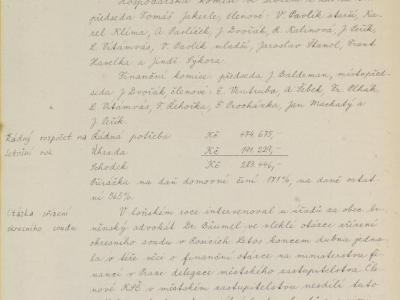 hospodářská komise ve složení
předseda Tomáš Jekerle, členové: V. Pavlík starší, Ka-
rel Klíma, A. Pavlíček, J. Dvořák, R. Kalinová, J. Cvik,
L. Vitámvás, V. Pavlík mladší, Jaroslav Hanol, Frant.
Havelka a Jindř. Sýkora.
Finanční komise: předseda J. Baldeman, místopřed-
seda J. Dvořák, členové: E. Ventruba, A. Šebek, Fr. Plhák,
L. Vitámvás, T. Řehořka, F. Procházka, Jan Machatý a
J. Cvik.
Řádný rozpočet na Řádná potřeba Kč 474.675,-
letošní rok Úhrada Kč 191.229,-
Schodek 283.446,-
Přirážka na daň domovní činí 171%, na daně ostat
ní 365%.
Otázka zřízení V loňském roce intervenoval u úřadů za obec bu-
okresního soudu čínský advokát Dr. Bäumel ve vleklé otázce zřízení
okresního soudu v Letos koncem dubna jedna-
la v téže věci o finanční otázce na ministerstvu fi-
nancí v Praze delegace městského zastupitelstva. Čle-
nové KSČ v městském zastupitelstvu nesdílí tuto